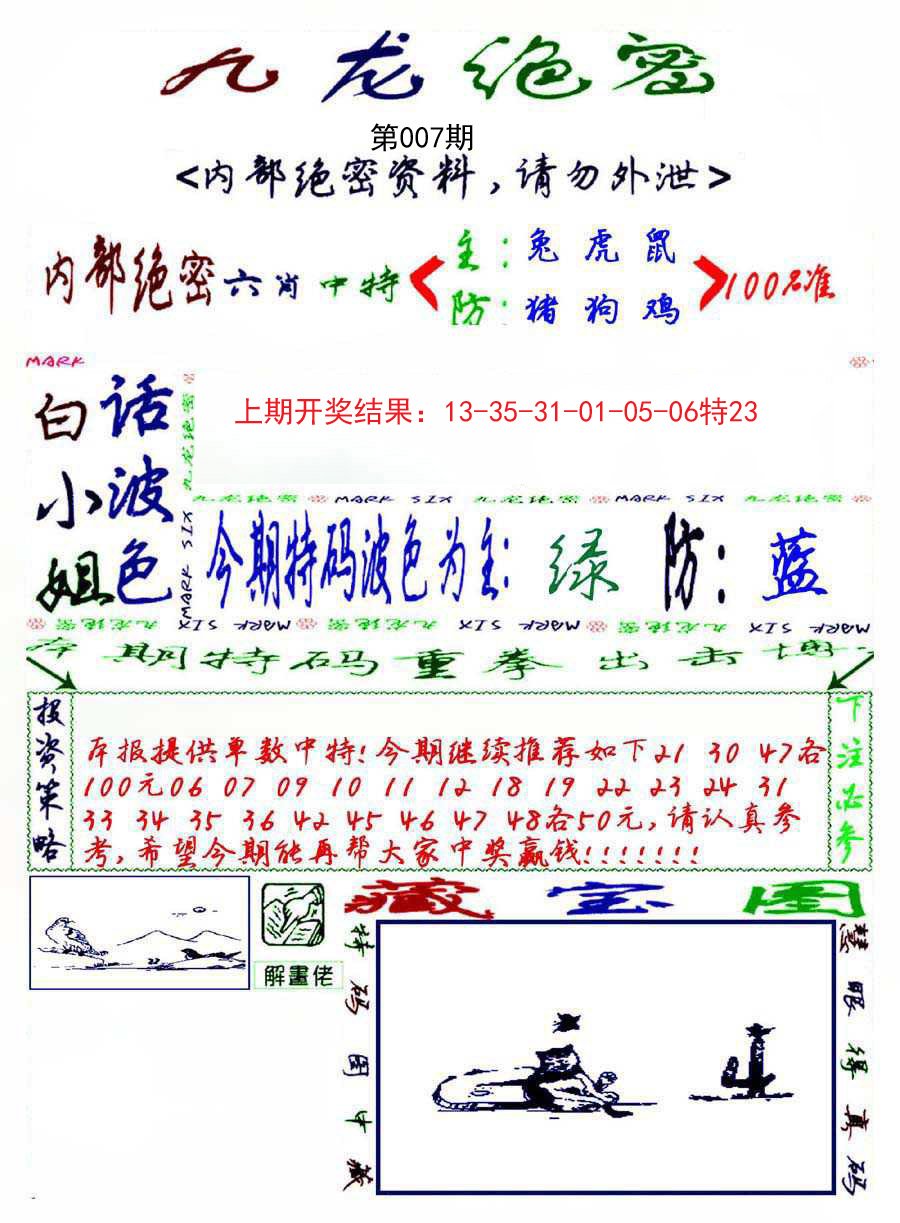 九龙绝密
第007期
<内部绝密资料,请勿外泄>
内部绝密六肖中特
主:兔虎鼠
防:猪狗鸡
100%准
MARK
白话小波姐色
九龙绝密 MARK SIX
上期开奖结果：13-35-31-01-05-06特23
九龙绝密 MARK SIX 九龙绝密 MARK SIX 九龙绝密
今期特码波色为主:绿 防:蓝
九龙绝密 MARK SIX 九龙绝密 MARK SIX 九龙绝密 MARK SIX
本期特码重拳出击博
投资策略
本报提供单数中特!今期继续推荐如下21 30 47各
100元06 07 09 10 11 12 18 19 22 23 24 31
33 34 35 36 42 45 46 47 48各50元,请认真参
考,希望今期能再帮大家中奖赢钱!!!!!!!
下注必参
解畫佬
藏宝图
特码图中藏
慧眼得真码